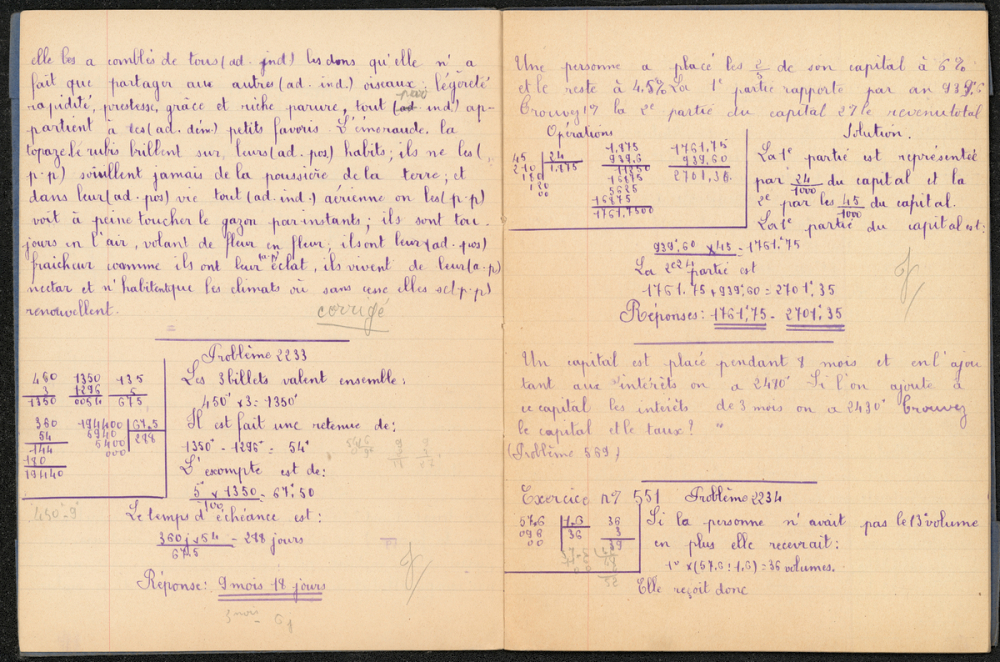 elle les a comblés de tous (ad. ind) les dons qu'elle n'a
fait que partager aux autres (ad. ind.) oiseaux légèreté
rapidité, prestesse, grâce et riche parure, tout (ad. ind) ap-
partient à ces (ad. dém) petits favoris. L'émeraude, la
topaze, le rubis brillent sur leurs (ad. pos) habits; ils ne les (
p.p) souillent jamais de la poussière de la terre; et
dans leur (ad. pos) vie tout (ad. ind.) aérienne on les (p.p)
voit à peine toucher le gazon par instants; ils sont tou-
jours en l'air, volant de fleur en fleur; ils ont leur (ad. pos)
fraicheur comme ils ont leur (a.p) éclat, ils vivent de leur (a.p)
nectar et n'habitent que les climats où sans cesse elles se (p.p)
renouvellent.
corrigé
Problème 2233
Les 3 billets valent ensemble:
450f x 3 = 1350f
Il est fait une retenue de:
1350f - 1296f = 54f
L'exompte est de:
5f x 1350 = 67f,50
100
Le temps d'échéance est:
360j x 54 = 288 jours
67.5
Réponse: 9 mois 18 jours
Une personne a placé les 2/5 de son capital à 6%
et le reste à 4.5% La 1e partie rapporte par an 939f6
Trouvez 1º la 2e partie du capital 2º le revenu total
Opérations
Solution.
45
24
1.875
1761.75
210
1.875
939.6
939.60
2701,35
1761.7500
La 1e partie est représentée
par 24/1000 du capital et la
2e par les 45/1000 du capital.
La 1e partie du capital est:
939f,60 x 45 = 1761f75
24
La 2e partie est
1761.75 + 939f,60 = 2701f,35
Réponses: 1761f,75 - 2701f,35
Un capital est placé pendant 8 mois et en l'ajou
tant aux intérêts on a 2470f Si l'on ajoute à
ce capital les interêts de 3 mois on a 2430f Trouvez
le capital et le taux? "
(Problème 569)
Exercice nº 551 Problème 2234
57.6
1.6
36
098
36
3
00
39
Si la personne n'avait pas le 13e volume
en plus elle recevrait:
1v x (57,6 : 1,6) = 36 volumes.
Elle reçoit donc